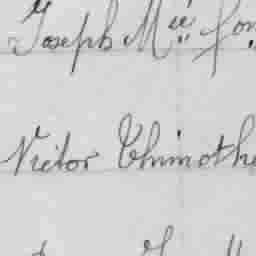 Joseph Mie fon
Victor Thimothe